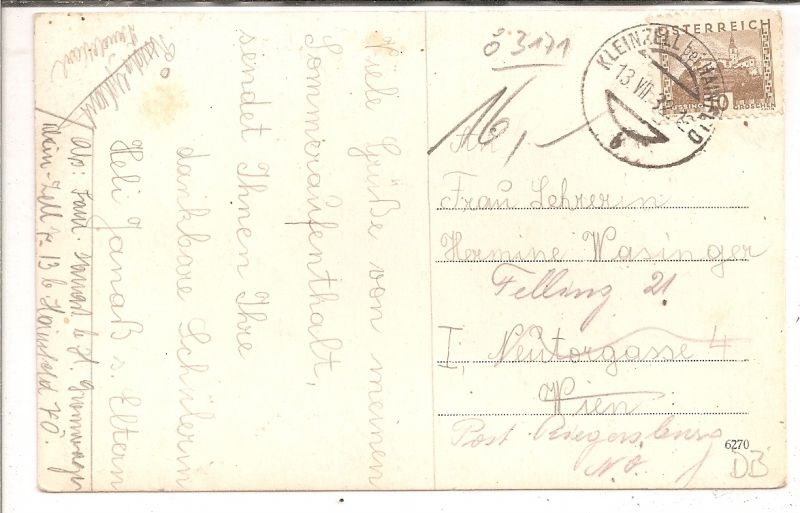 Viele Grüße von meinem
Sommeraufenthalt,
sendet Ihnen Ihre
dankbare Schülerin
Heli Janaß s. Eltern
Abs: Fam.
Klein-Zell 7-13 b Hainfeld N.Ö.
Ö 3171
16,-
ÖSTERREICH
GROSCHEN
KLEINZELL bei HAINFELD
13 VII
An
Frau Lehrerin
Hermine Wasinger
Felling 21
I, Neutorgasse 4
Wien
Post Riegersburg
N.Ö.
6270
DB